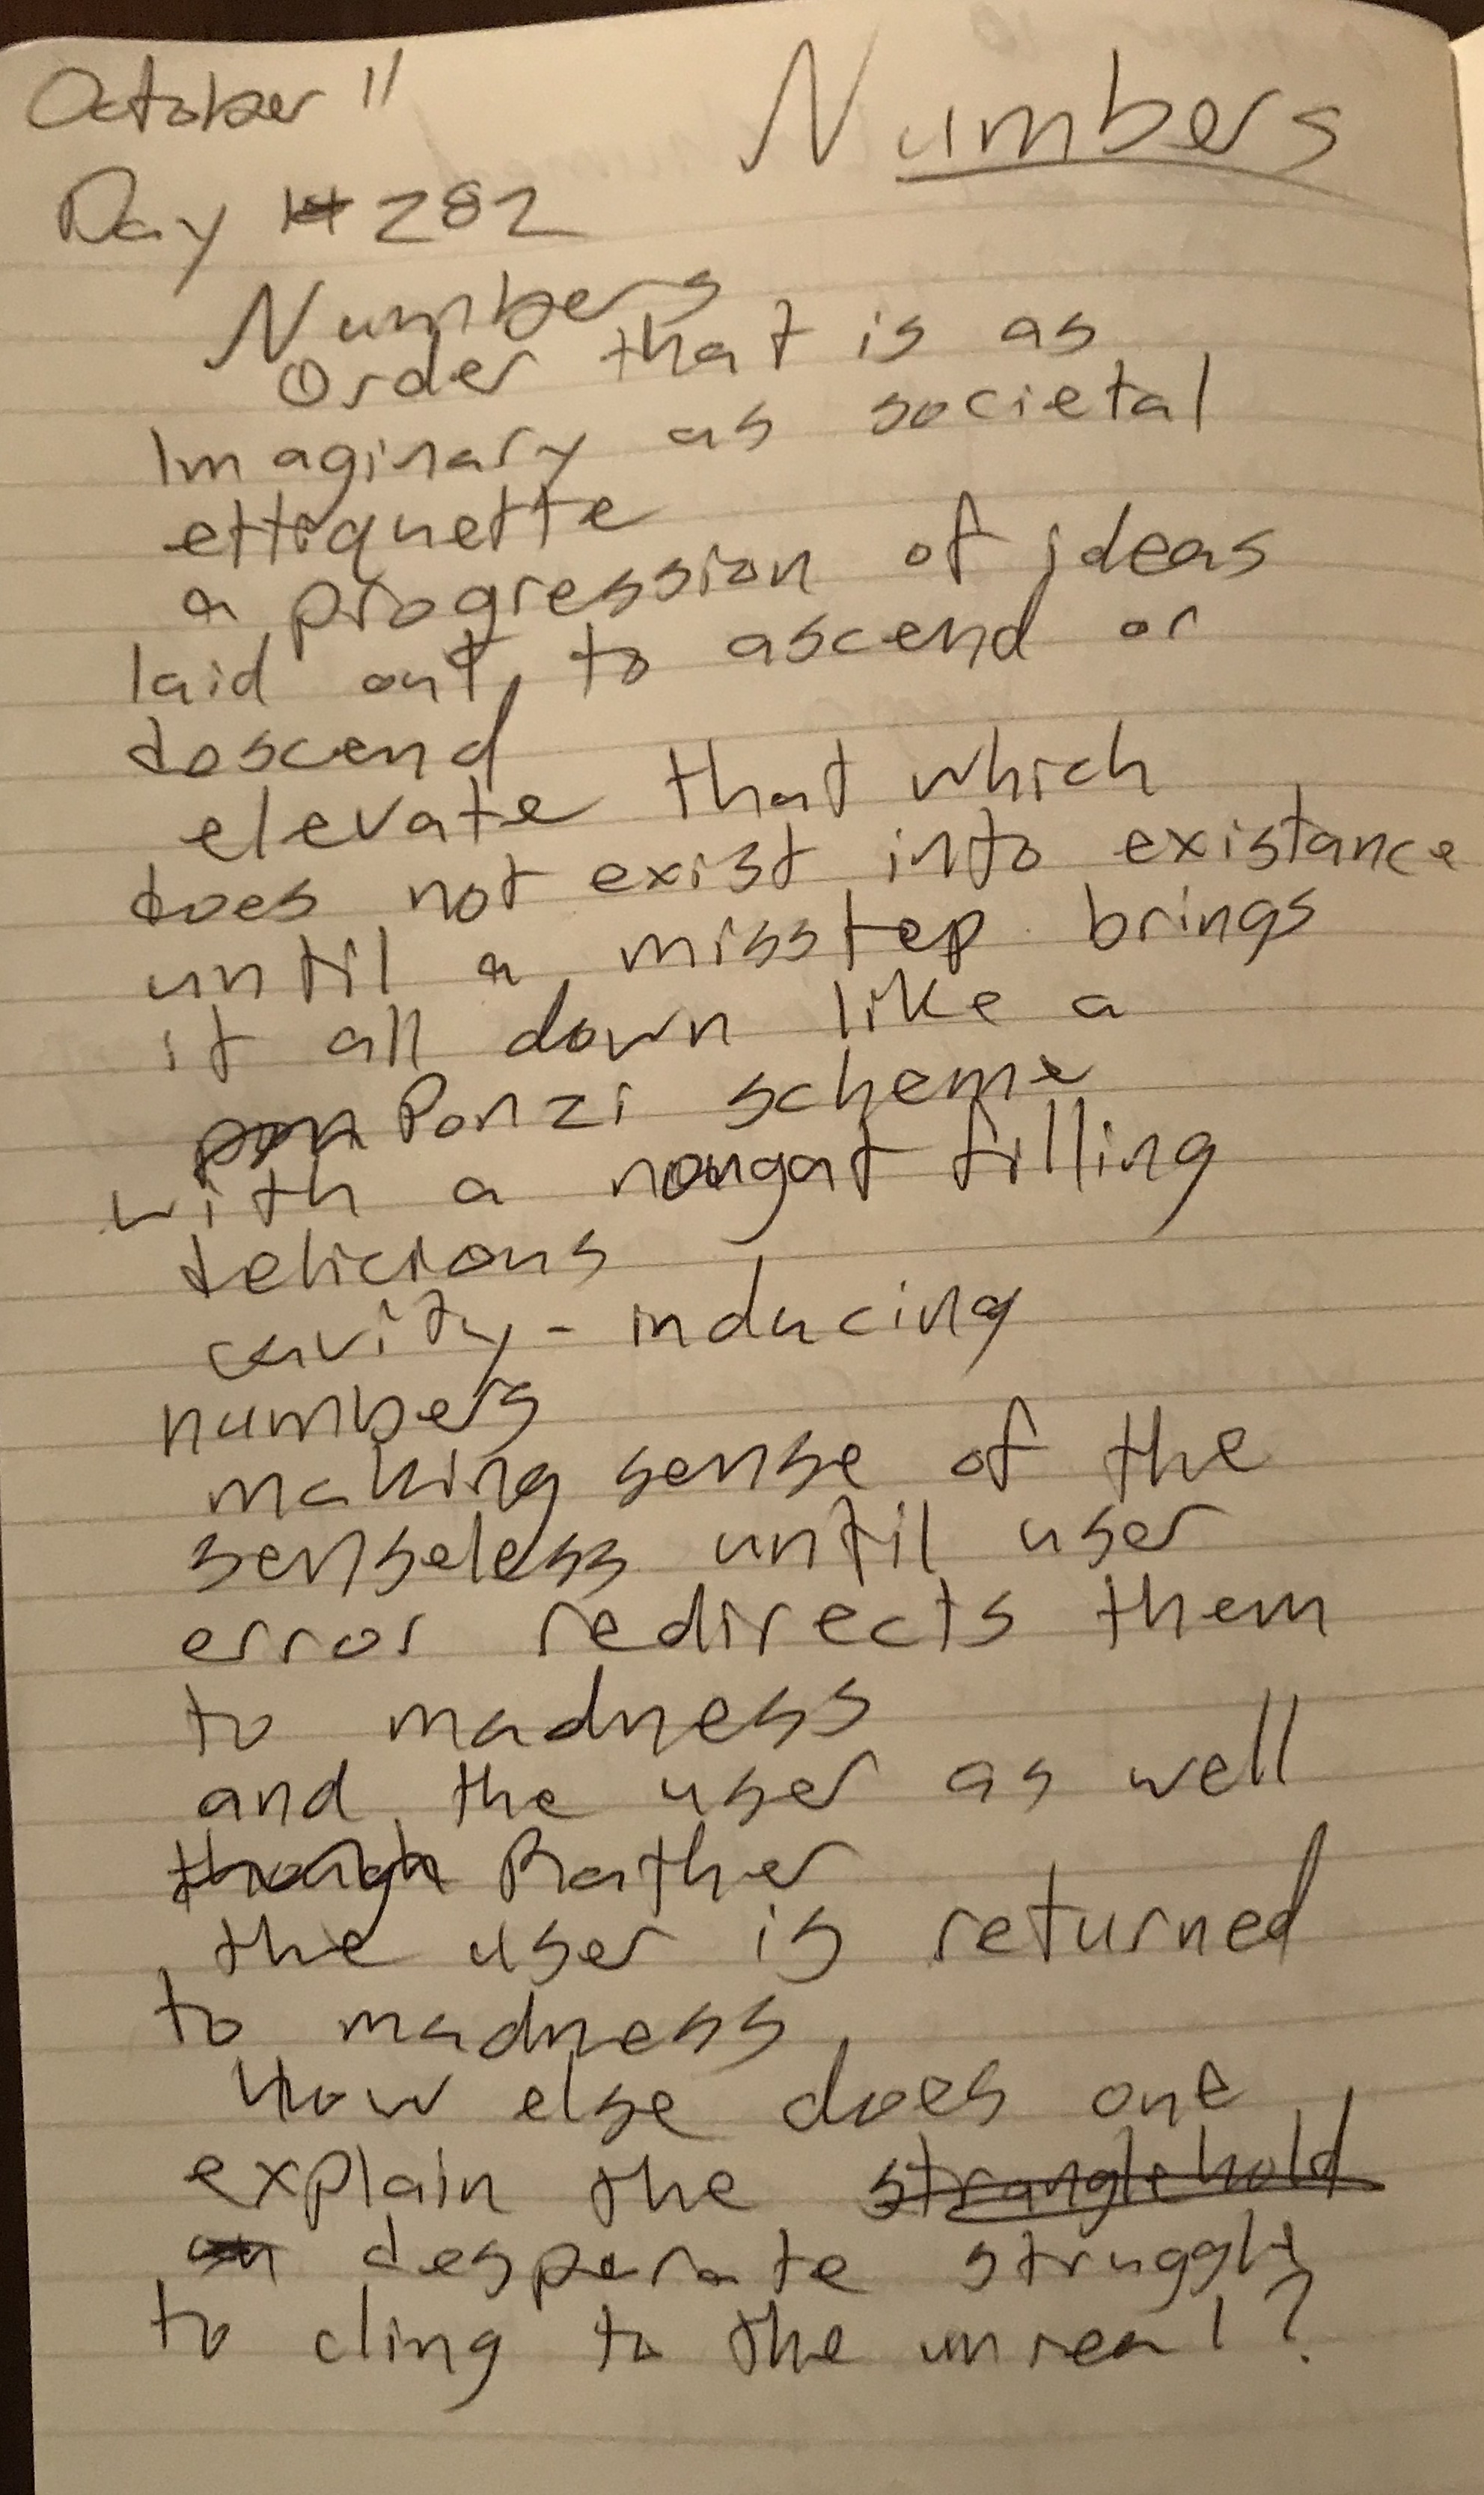 October 11
Numbers
Day 282
Numbers
Order that is as
Imaginary as societal
ettiquette
a progression of ideas
laid out to ascend or
descend
elevate that which
does not exist into existance
until a misstep brings
it all down like a
Ponzi scheme
with a nougat filling
delicious
cavity-inducing
numbers
making sense of the
senseless until user
error redirects them
to madness
and the user as well
though Rather
the user is returned
to madness
How else does one
explain the stranglehold
desperate struggle
to cling to the unreal?